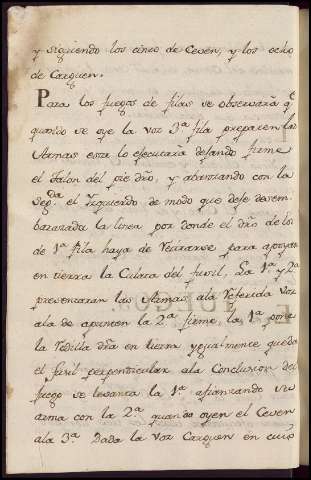 y siguiendo los cinco de Ceven, y los ocho
de Carguen.
Para los fuegos de filas se observará q.e
quando se oye la voz 3.a fila preparen las
Armas esta lo ejecutará dejando firme
el talon del pie dro, y abanzando con la
seg.da el Yzquierdo de modo que deje desem-
barazada la linea por donde el dro de los
de 1.a fila haya de retirarse para apoyar
en tierra la Culata del fusil, La 1.a y 2.a
presentarán las Armas ala referida voz
ala de apunten la 2.a firme, la 1.a pone
la rodilla dra en tierra yqualmente queda
el fusil perpenticular ala Conclusion del
fuego se levanta la 1.a afianzando su
arma con la 2.a quando oyen el Ceven
ala 3.a Dada la voz Carguen en cuio